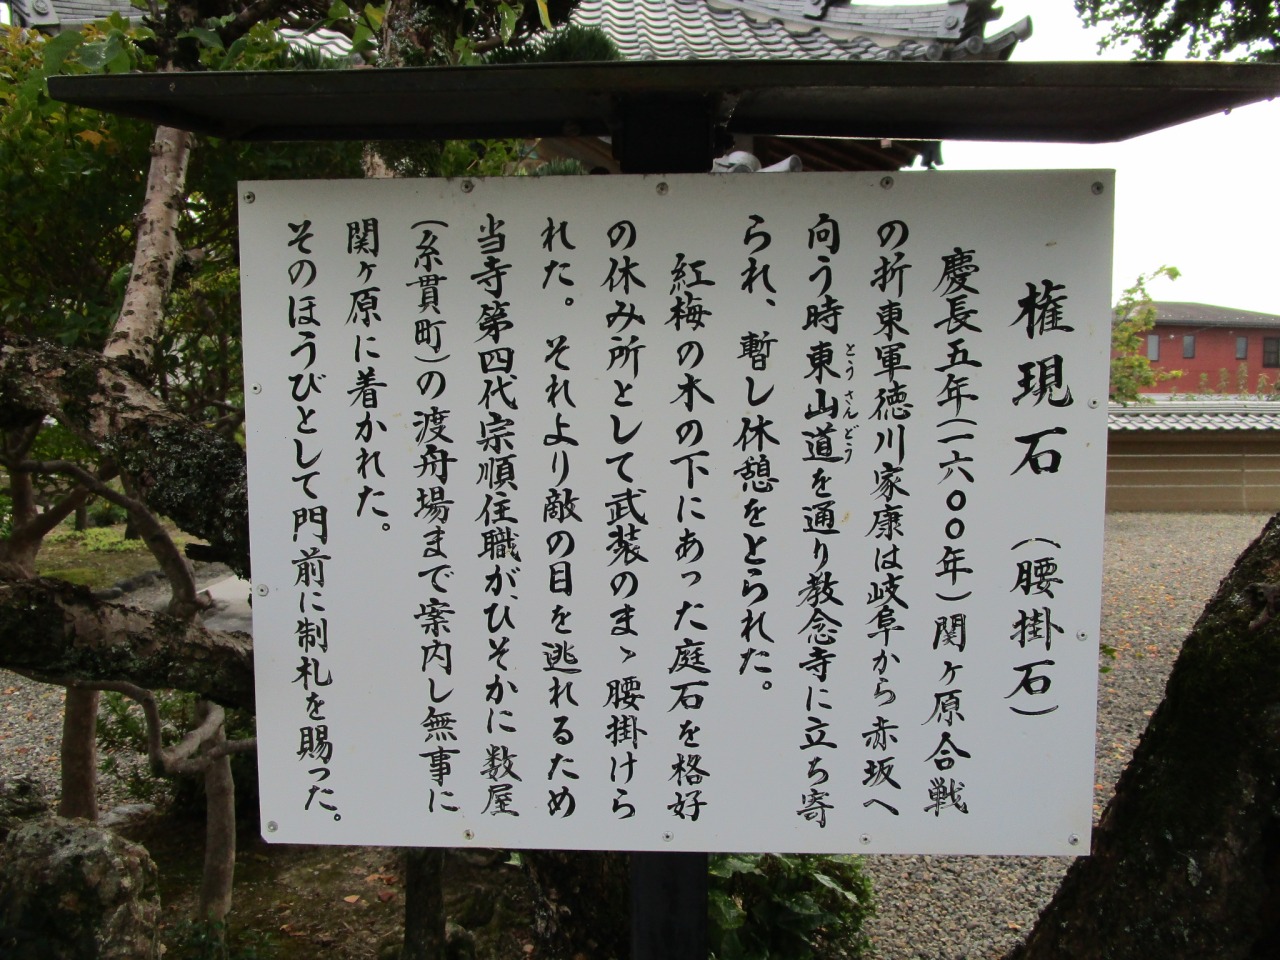 権現石 (腰掛石)
慶長五年(一六〇〇年)関ヶ原合戦
の折東軍徳川家康は岐阜から赤坂へ
向う時東山道を通り教念寺に立ち寄
とうさんどう
られ、暫し休憩をとられた。
紅梅の木の下にあった庭石を格好
の休み所として武装のまゝ腰掛けら
れた。それより敵の目を逃れるため
当寺第四代宗順住職が、ひそかに数屋
(糸貫町)の渡舟場まで案内し無事に
関ヶ原に着かれた。
そのほうびとして門前に制札を賜った。